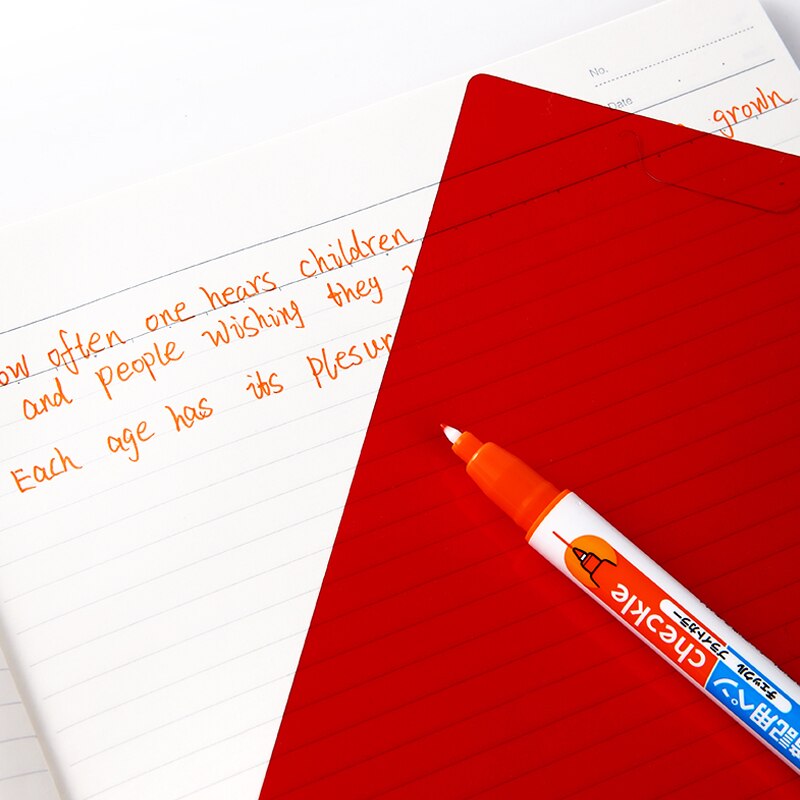 No.
Date
grown
ow often one hears children
and people wishing they
Each age has its plesur
checkle
チェックル ブライトカラー
暗記用ペン